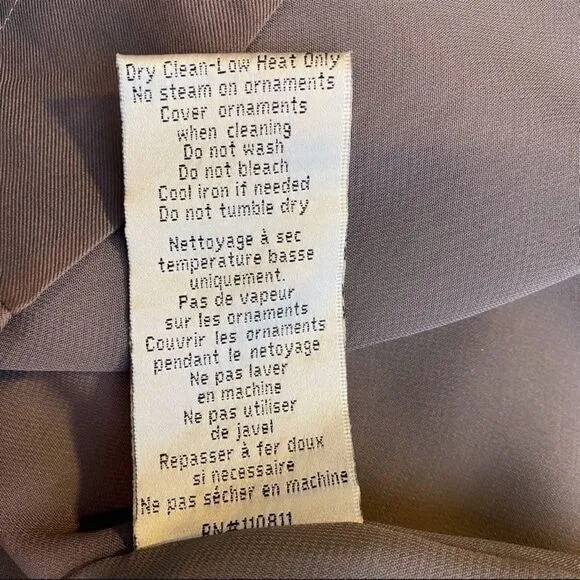 Dry Clean-Low Heat Only
No steam on ornaments
Cover ornaments
when cleaning
Do not wash
Do not bleach
Cool iron if needed
Do not tumble dry
Nettoyage à sec
temperature basse
uniquement.
Pas de vapeur
sur les ornaments
Couvrir les ornaments
pendant le netoyage
Ne pas laver
en machine
Ne pas utiliser
de javel
Repasser à fer doux
si necessaire
Ne pas sécher en machine
RN#110811